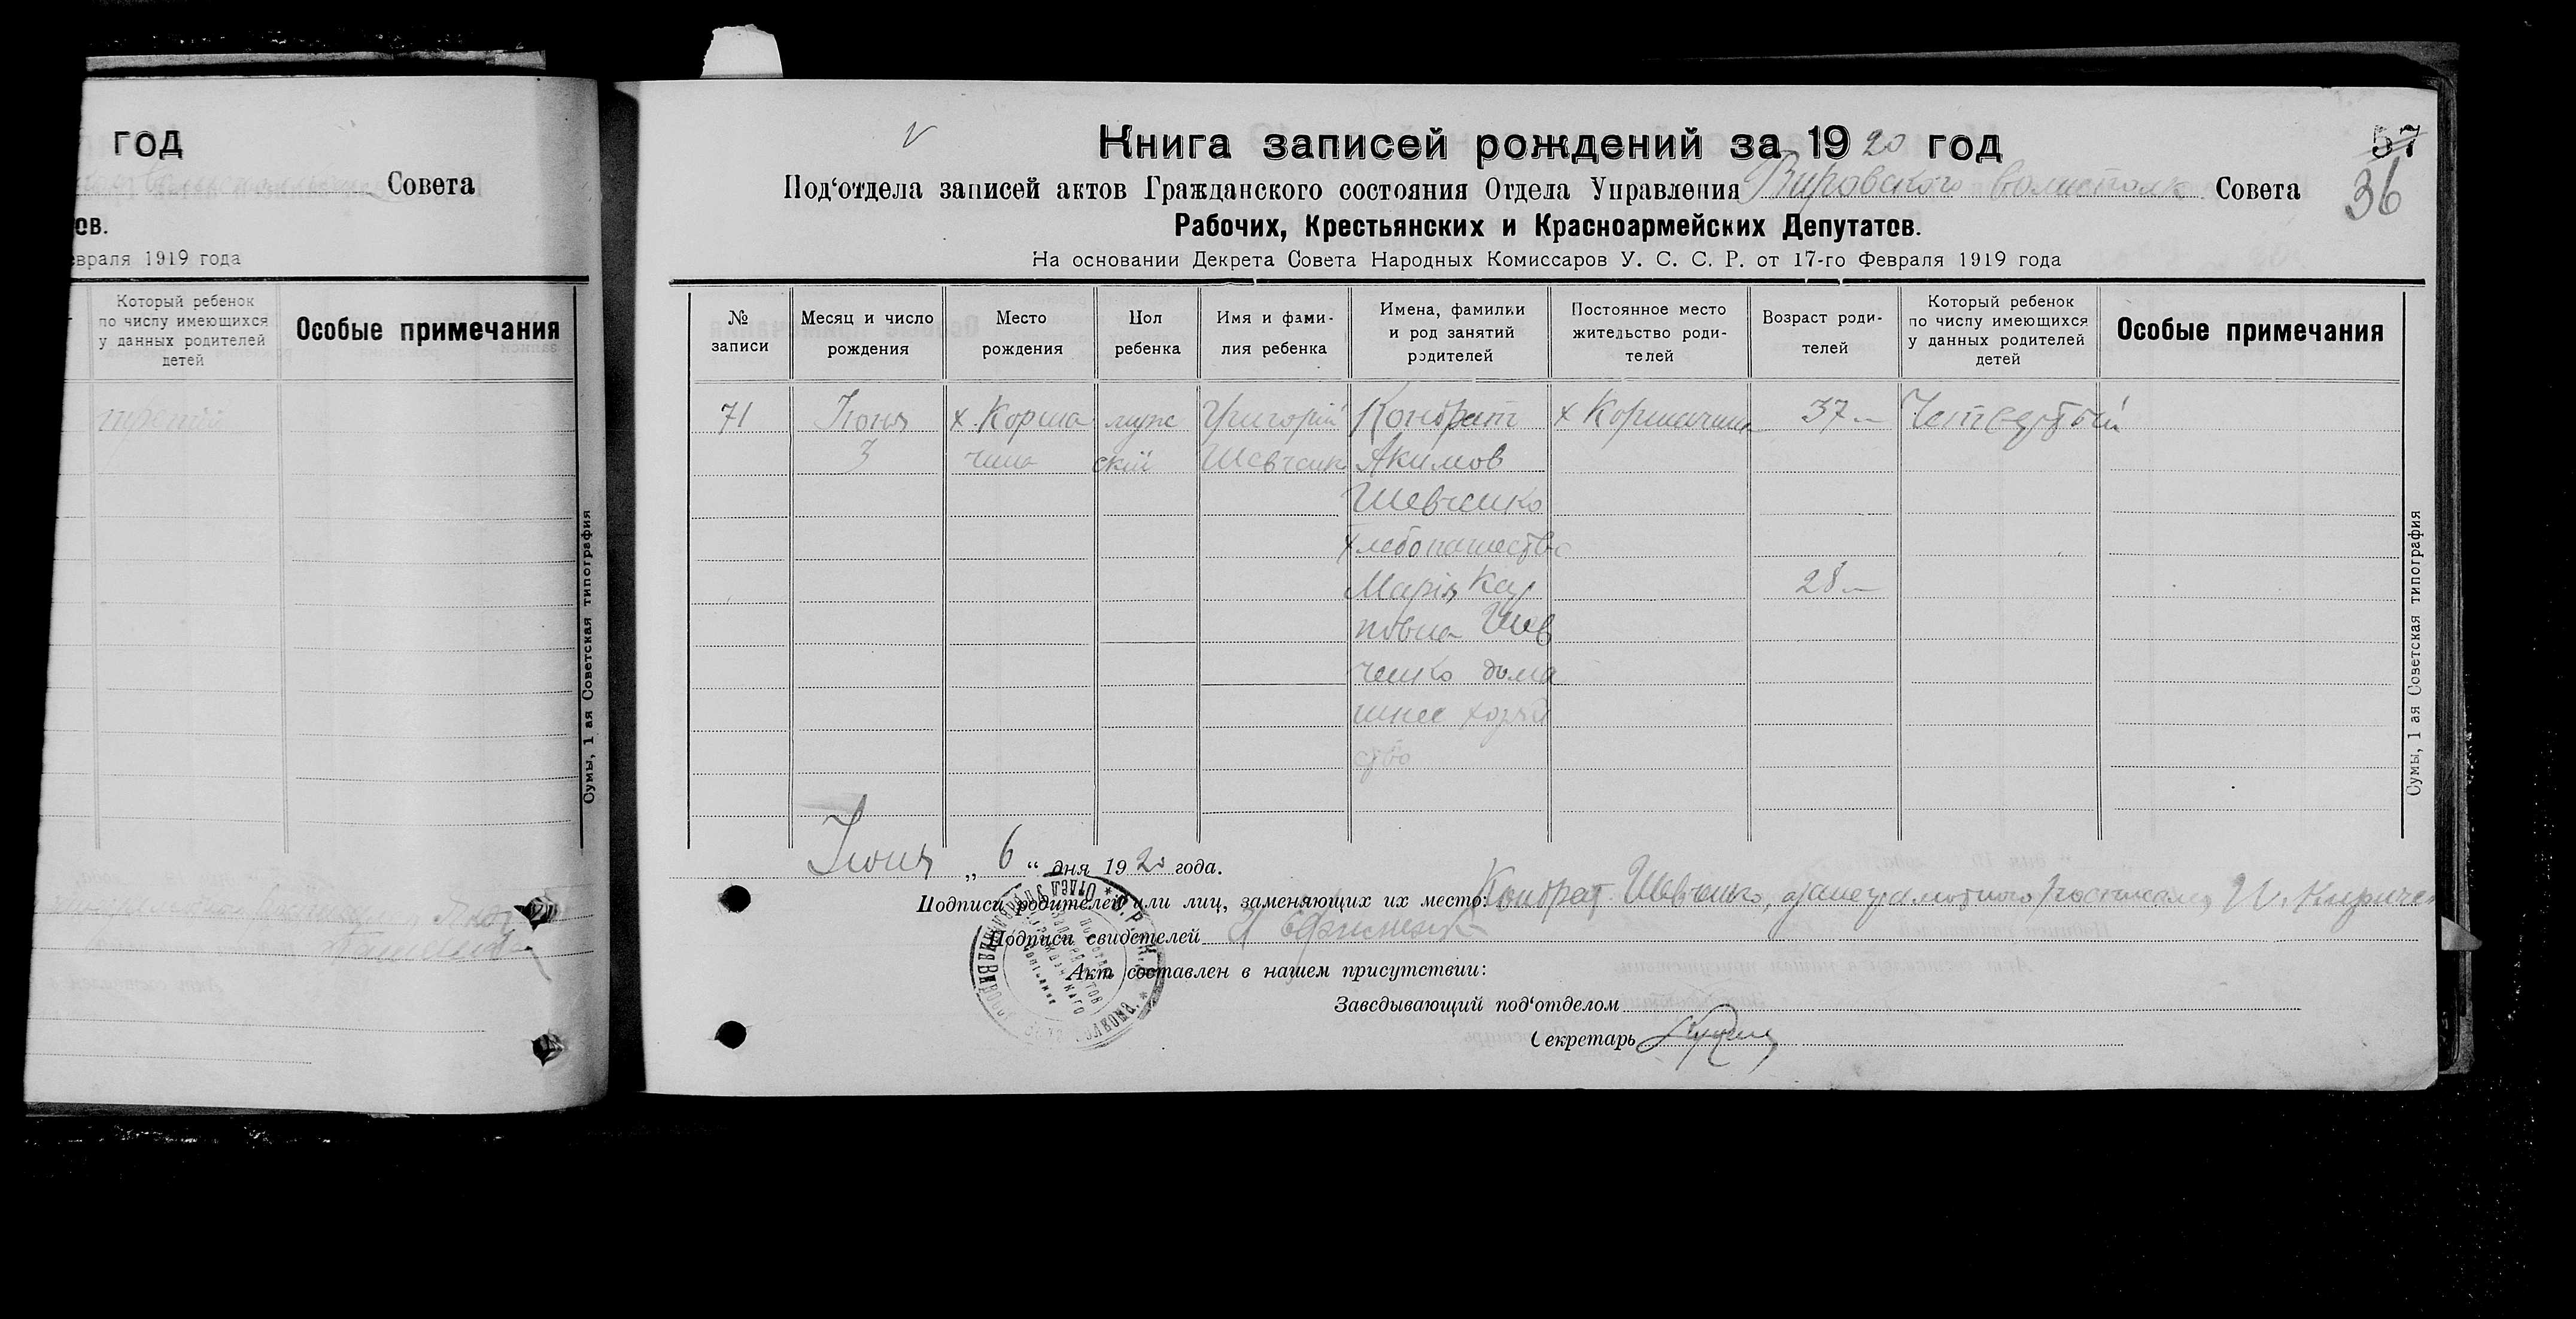 год
Совета
ов.
евраля 1919 года
Который ребенок
по числу имеющихся
у данных родителей
детей
Особые примечания
третий
Сумы, 1 ая Советская типография
Книга записей рождений за 1920 год
57
36
Под‘отдела записей актов Гражданского состояния Отдела Управления Вировского волисполк Совета
Рабочих, Крестьянских и Красноармейских Депутатов.
На основании Декрета Совета Народных Комиссаров У. С. С. Р. от 17-го Февраля 1919 года
№
записи
Месяц и число
рождения
Место
рождения
Пол
ребенка
Имя и фами-
лия ребенка
Имена, фамилки
и род занятий
родителей
Постоянное место
жительство роди-
телей
Возраст роди-
телей
Который ребенок
по числу имеющихся
у данных родителей
детей
Особые примечания
71
Июня
3
х. Корша
чина
муж
ский
Григорій
Шевченко
Кондрат
Акимов
Шевченко
хлебопашество
Марія Кар
повна Шев
ченко дома
шнее хозяй
ство
х Коршачина
37
28
Четвертый
Июня „ 6 “ дня 1920 года.
Подписи родителей или лиц, заменяющих их место: Кондрат Шевченко, а за неграмотного росписался И. Кириче
Подписи свидетелей
Акт составлен в нашем присутствии:
Заведывающий под‘отделом
Секретарь
Сумы, 1 ая Советская типография